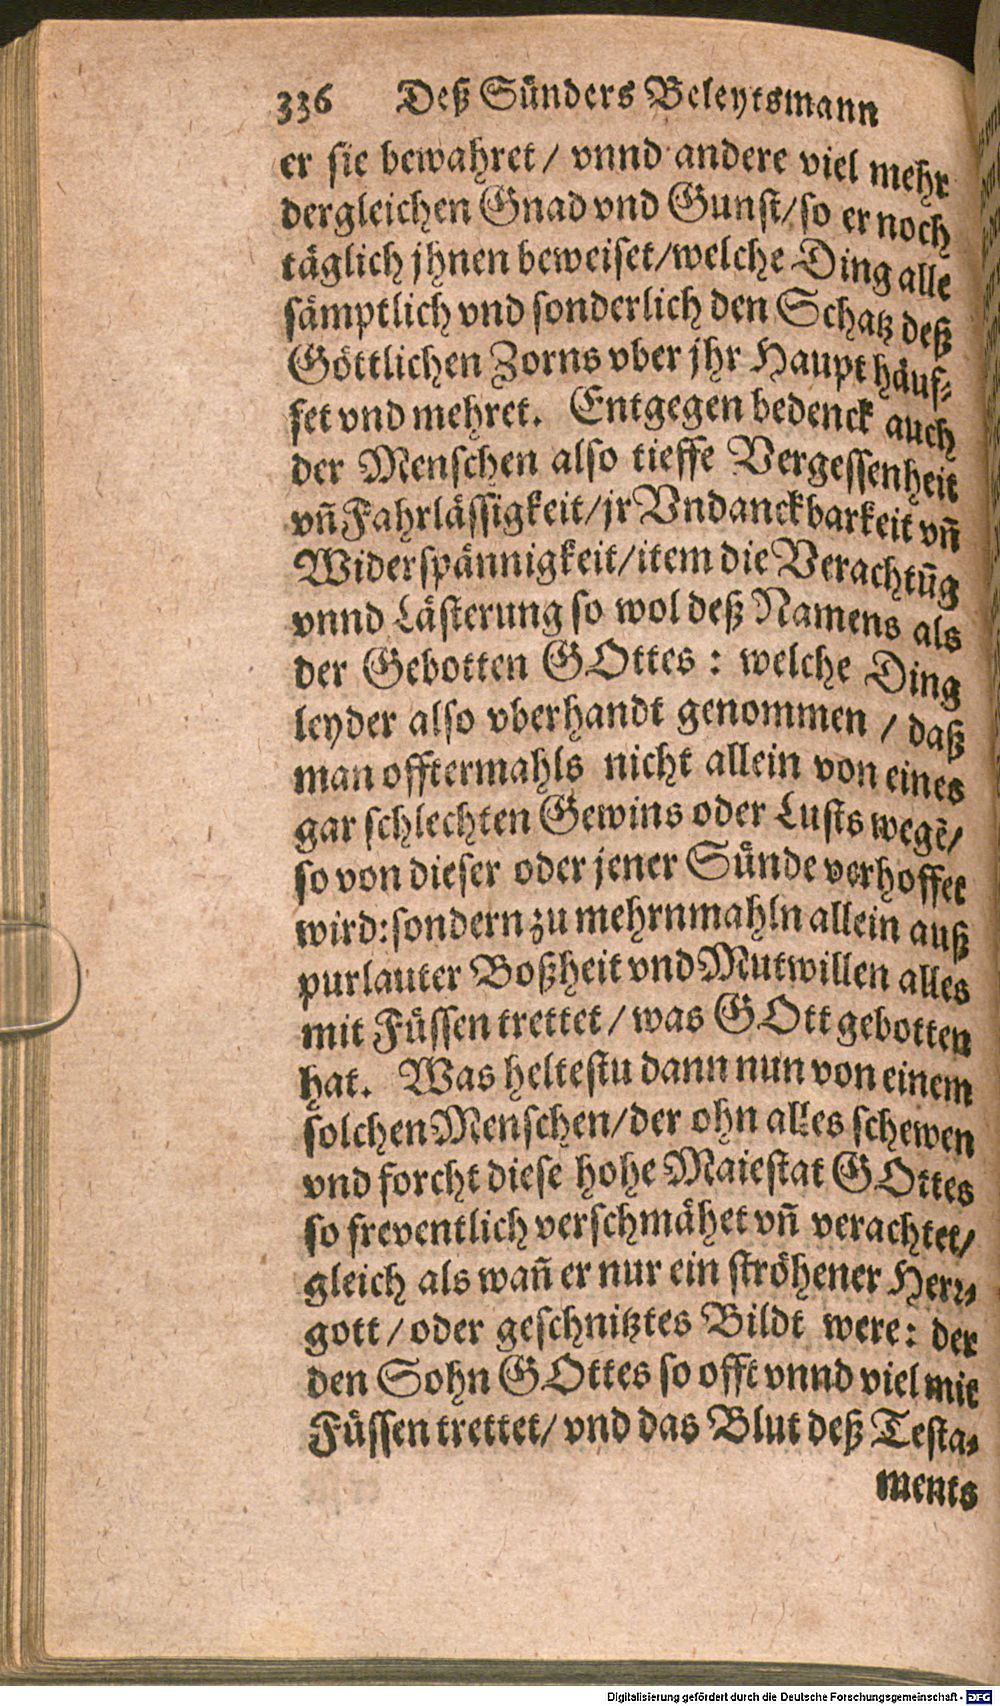 336 Deß Sünders Beleytsmann
er sie bewahret / vnnd andere viel mehr
dergleichen Gnad vnd Gunst/so er noch
täglich jhnen beweiset/welche Ding alle
sämptlich vnd sonderlich den Schatz deß
Göttlichen Zorns vber jhr Haupt häuf-
fet vnd mehret. Entgegen bedenck auch
der Menschen also tieffe Vergessenheit
vñ Fahrlässigkeit/jr Vndanckbarkeit vñ
Widerspännigkeit/item die Verachtũg
vnnd Lästerung so wol deß Namens als
der Gebotten GOttes : welche Ding
leyder also vberhandt genommen / daß
man offtermahls nicht allein von eines
gar schlechten Gewins oder Lusts wegẽ/
so von dieser oder jener Sünde verhoffet
wird:sondern zu mehrnmahln allein auß
purlauter Boßheit vnd Mutwillen alles
mit Füssen trettet / was GOtt gebotten
hat. Was heltestu dann nun von einem
solchen Menschen/der ohn alles schewen
vnd forcht diese hohe Maiestat GOttes
so freventlich verschmähet vñ verachtet/
gleich als wañ er nur ein ströhener Herr-
gott / oder geschnitztes Bildt were: der
den Sohn GOttes so offt vnnd viel mit
Füssen trettet/ vnd das Blut deß Testa-
ments
Digitalisierung gefördert durch die Deutsche Forschungsgemeinschaft - DFG